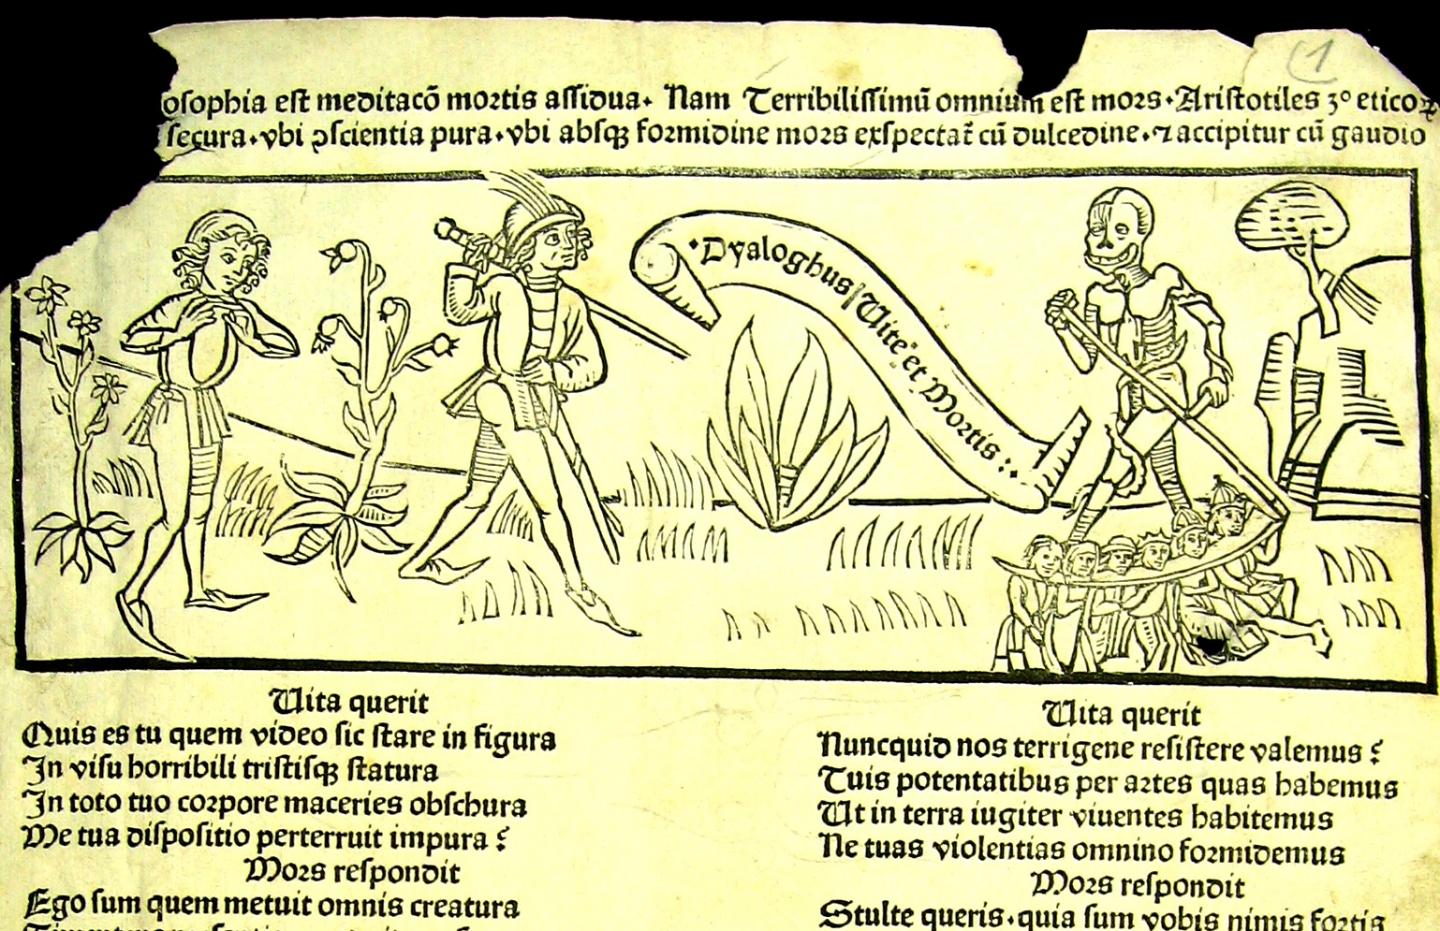 1
osophia est meditacō mortis assidua. Nam Terribilissimū omnium est mors. Aristotiles 3º eticoꝝ
secura. vbi ꝯscientia pura. vbi absqꝫ formidine mors exspectat̄ cū dulcedine. ⁊ accipitur cū gaudio
Dyaloghus Vite et Mortis :.
Uita querit
Quis es tu quem video sic stare in figura
In visu horribili tristisqꝫ statura
In toto tuo corpore maceries obschura
Me tua dispositio perterruit impura ?
Mors respondit
Ego sum quem metuit omnis creatura
Uita querit
Nuncquid nos terrigene resistere valemus ?
Tuis potentatibus per artes quas habemus
Ut in terra iugiter viuentes habitemus
Ne tuas violentias omnino formidemus
Mors respondit
Stulte queris. quia sum vobis nimis fortis